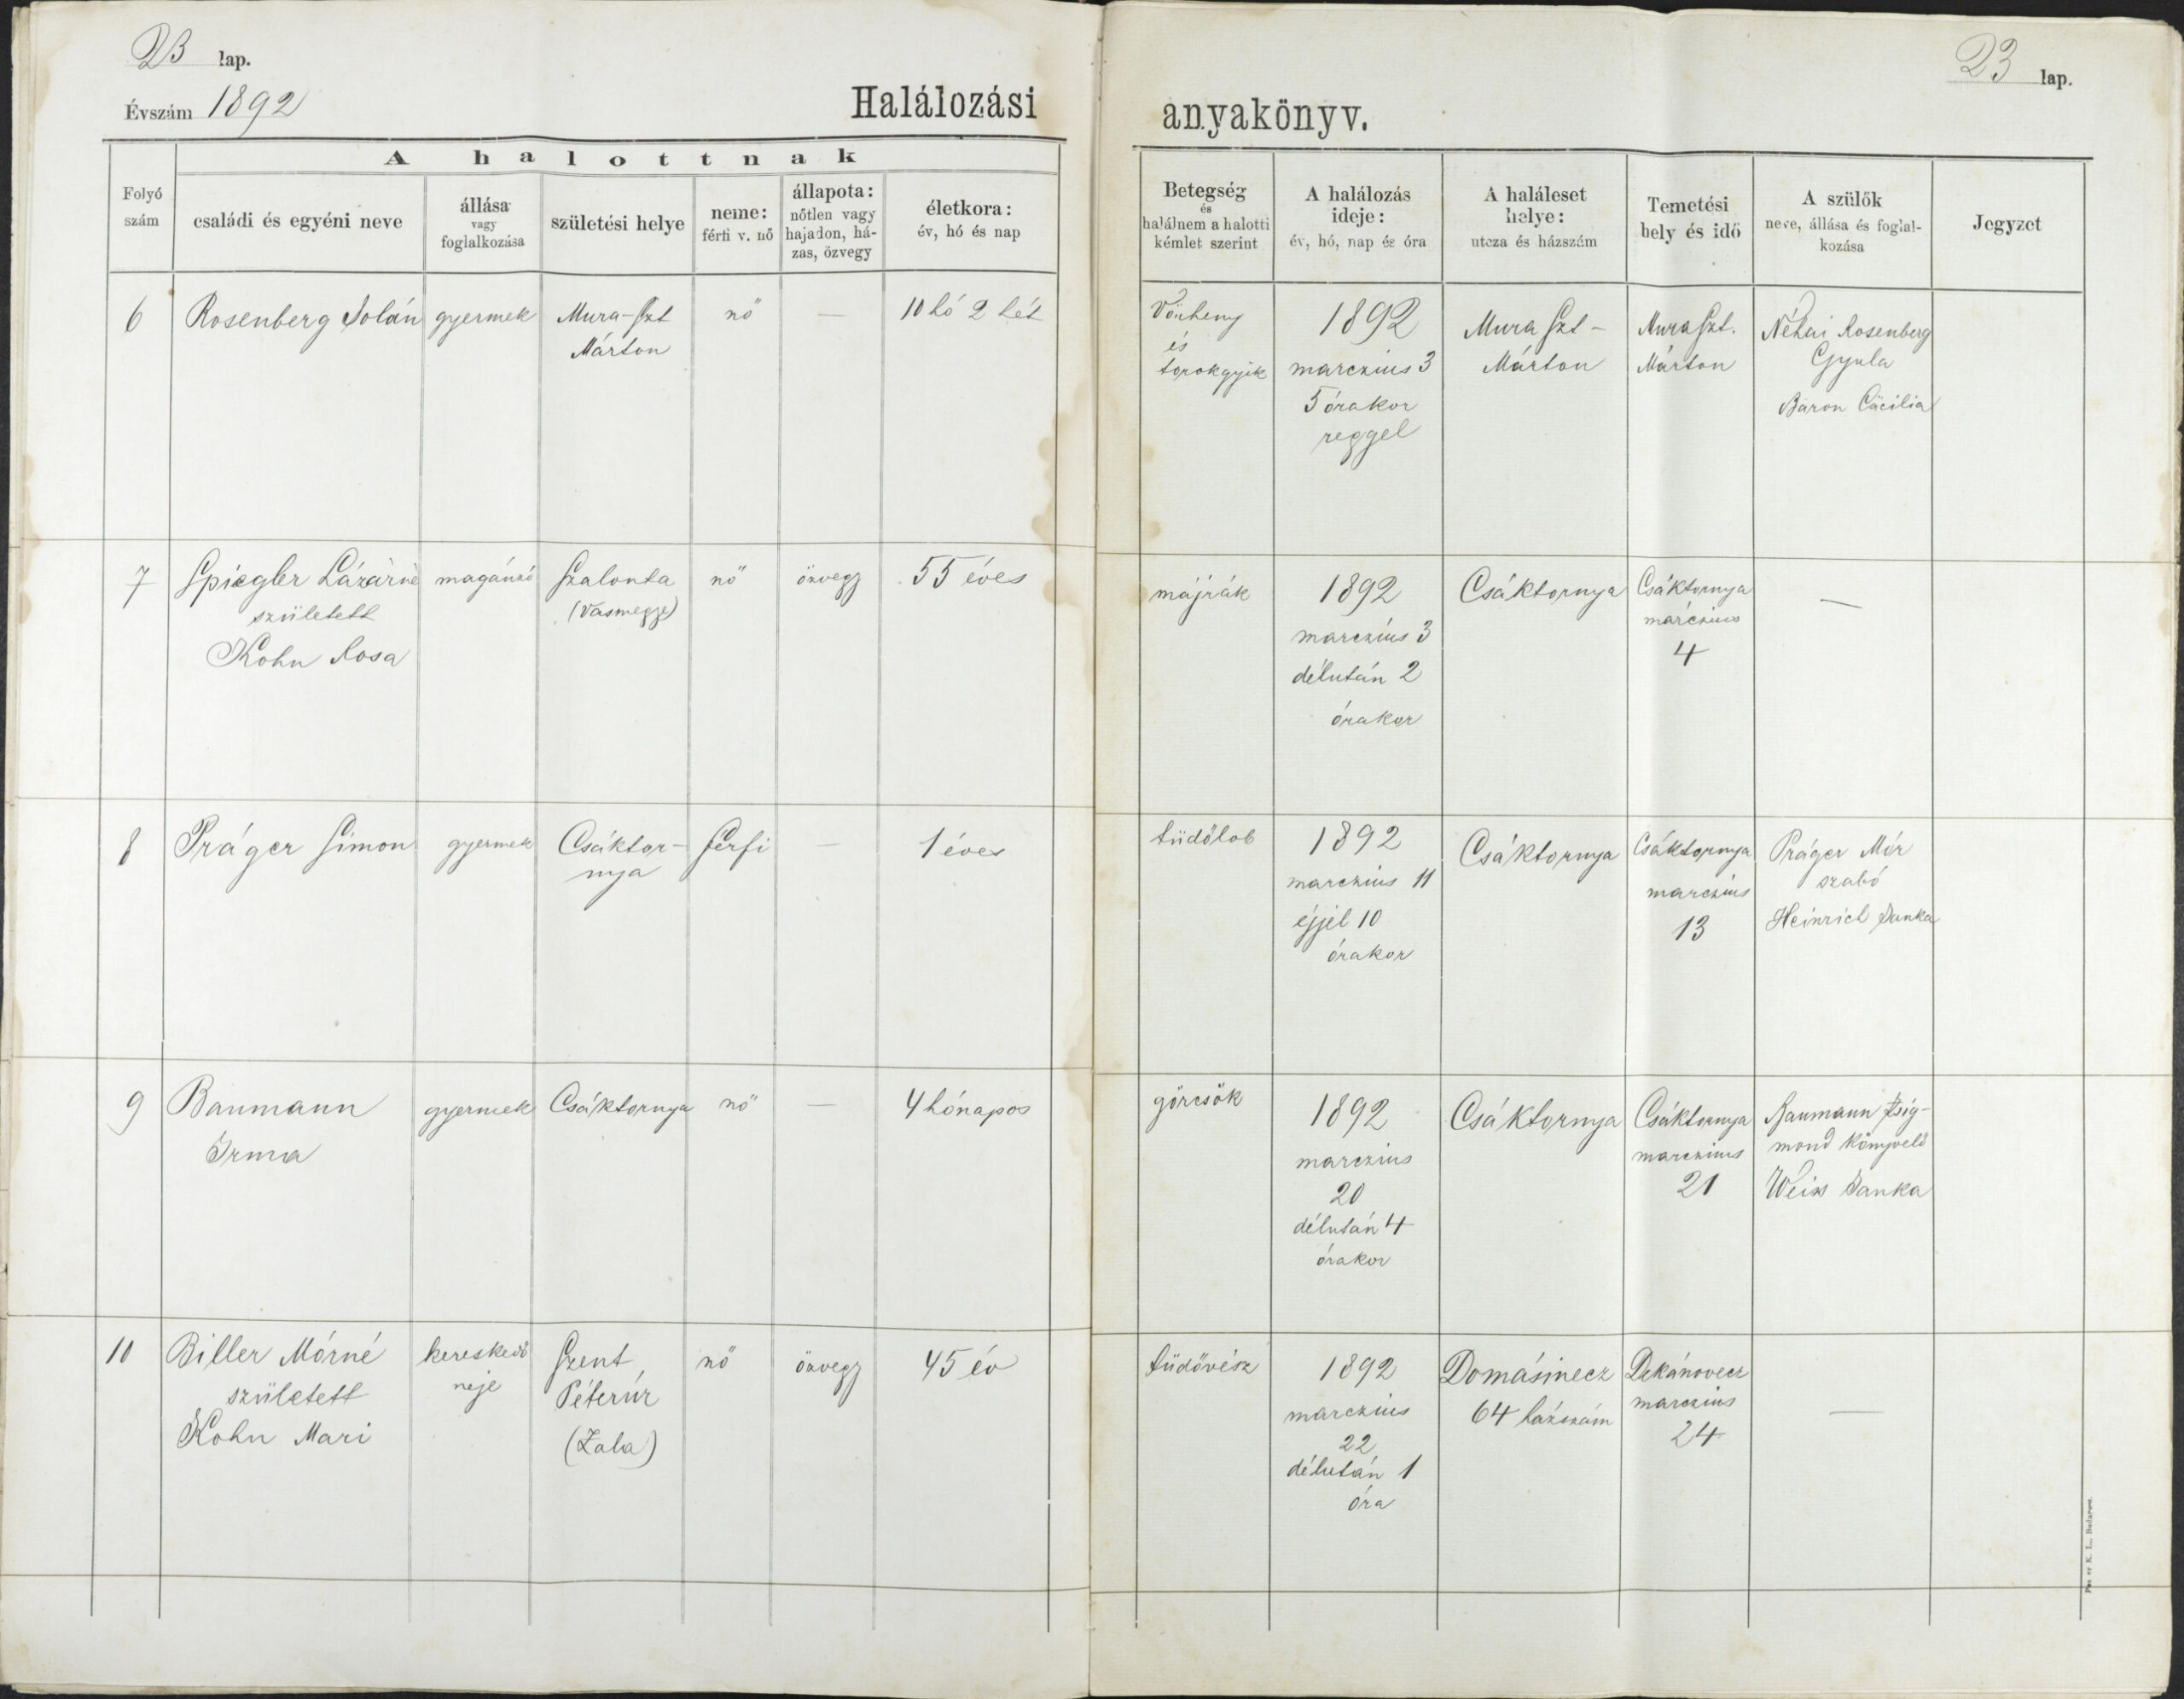 23 lap.
Évszám 1892
Halálozási
A halottnak
Folyó
szám
családi és egyéni neve
állása
vagy
foglalkozása
születési helye
neme:
férfi v. nő
állapota:
nőtlen vagy
hajadon, há-
zas, özvegy
életkora:
év, hó és nap
6
Rosenberg Jolán
gyermek
Mura-Szt
Márton
nő
—
10 hó 2 hét
7
Spiegler Lázárné
született
Kohn Rosa
magánzó
Szalonta
(Vasmegye)
nő
özvegy
55 éves
8
Práger Simon
gyermek
Csáktor-
nya
férfi
—
1 éves
9
Baumann
Irma
gyermek
Csáktornya
nő
—
4 hónapos
10
Biller Mórné
született
Kohn Mari
kereskedő
neje
Szent
Péterúr
(Zala)
nő
özvegy
45 év
23 lap.
anyakönyv.
Betegség
és
halálnem a halotti
kémlet szerint
A halálozás
ideje:
év, hó, nap és óra
A haláleset
helye:
utcza és házszám
Temetési
hely és idő
A szülők
neve, állása és foglal-
kozása
Jegyzet
Vörheny
és
torokgyik
1892
marczius 3
5 órakor
reggel
Mura Szt-
Márton
Mura Szt.
Márton
Néhai Rosenberg
Gyula
Báron Cäcilia
májrák
1892
marczius 3
délután 2
órakor
Csáktornya
Csáktornya
márczius
4
—
tüdőlob
1892
marczius 11
éjjel 10
órakor
Csáktornya
Csáktornya
marczius
13
Práger Mór
szabó
Heinrich Hanka
görcsök
1892
marczius
20
délután 4
órakor
Csáktornya
Csáktornya
marczius
21
Baumann Zsig-
mond könyvelő
Weiss Janka
tüdővész
1892
marczius
22
délután 1
óra
Domásinecz
64 házszám
Dekánovecz
marczius
24
—